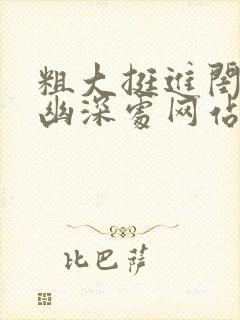 粗大挺进闺
幽深处网佔
比巴萨